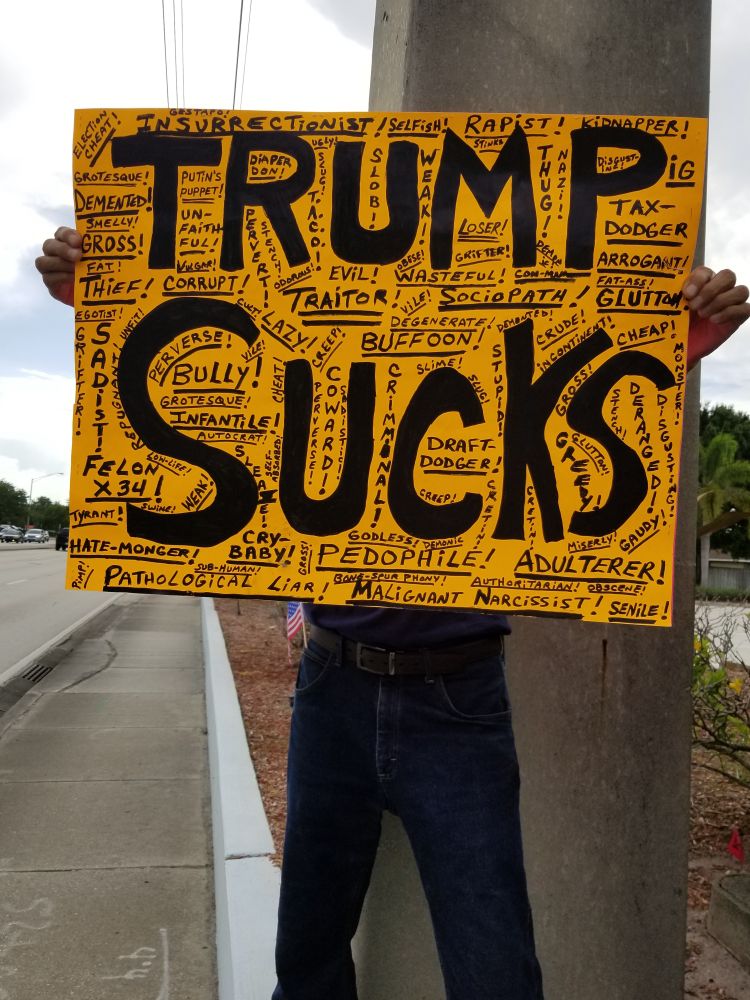 GESTAPO!
ELECTION CHEAT!
INSURRECTIONIST!
SELFISH!
RAPIST!
KIDNAPPER!
TRUMP
SUCKS
GROTESQUE!
DEMENTED!
SMELLY!
GROSS!
FAT!
THIEF!
CORRUPT!
PUTIN'S PUPPET!
UN-FAITHFUL!
VULGAR!
DIAPER DON!
PERVERT!
STENCH!
ODOROUS!
UGLY!
TACO!
SLOB!
WEAK!
STINKS
LOSER!
GRIFTER!
OBESE!
THUG!
NAZI!
DISGUSTING!
PIG
TAX-DODGER
ARROGANT!
FAT-ASS!
GLUTTON
EVIL!
WASTEFUL!
CON-MAN
TRAITOR!
VILE!
SOCIOPATH!
EGOTIST!
GRIFTER!
SADIST!
REPUGNANT!
UNFIT!
LAZY!
CREEP!
DEGENERATE!
BUFFOON!
DEMENTED!
CRUDE!
INCONTINENT!
CHEAP!
MONSTER!
PERVERSE!
VILE!
BULLY!
GROTESQUE!
INFANTILE!
AUTOCRAT!
CHEAT!
SELF-ABSORBED!
PERVERSE!
COWARD!
SADISTIC!
CRIMINAL!
SLIME!
SLUG!
STUPID!
GROSS!
DRAFT-DODGER!
CREEP!
CRETIN!
CRETIN!
GREEDY!
GLUTTON!
DERANGED!
DISGUSTING!
FELON X34!
LOW-LIFE!
SWINE!
WEAK!
SLEAZE!
TYRANT!
HATE-MONGER!
CRY-BABY!
GROSS!
GODLESS!
DEMONIC
PEDOPHILE!
MISERLY!
GAUDY!
ADULTERER!
PIMP!
SUB-HUMAN!
PATHOLOGICAL LIAR!
BONE-SPUR PHONY!
MALIGNANT NARCISSIST!
AUTHORITARIAN!
OBSCENE!
SENILE!